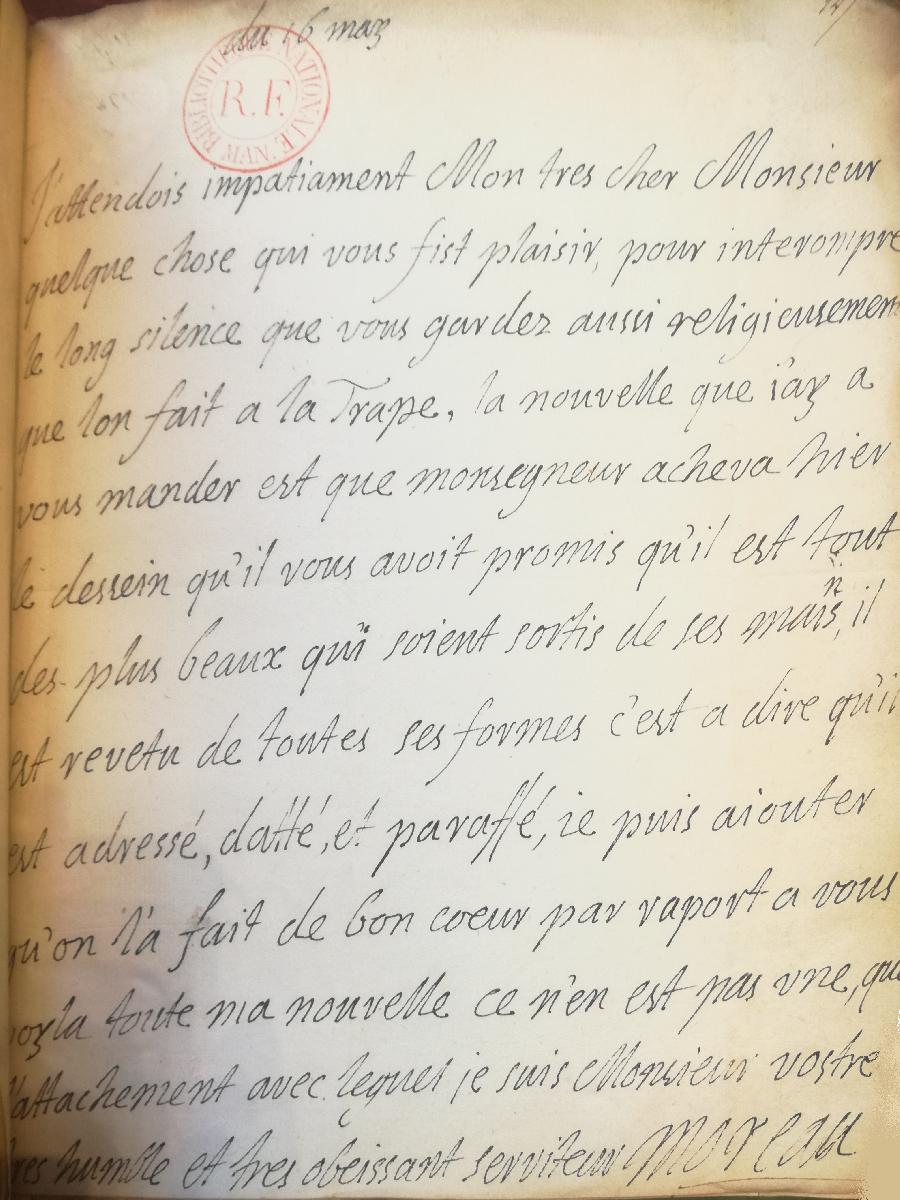 du 16 marz
BIBLIOTHEQUE NATIONALE MAN
R.F.
J'attendois impatiament Mon tres cher Monsieur
quelque chose qui vous fist plaisir, pour interompre
le long silence que vous gardez aussi religieusement
que lon fait a la Trape, la nouvelle que i'ay a
vous mander est que monsegneur acheva hier
le dessein qu'il vous avoit promis qu'il est tout
des plus beaux qui soient sortis de ses mains, il
est revetu de toutes ses formes c'est a dire qu'il
est adressé, datté, et paraffé, ie puis aiouter
qu'on l'a fait de bon coeur par raport a vous
voyla toute ma nouvelle ce n'en est pas vne, que
l'attachement avec lequel je suis Monsieur vostre
tres humble et tres obeissant serviteur Moreau